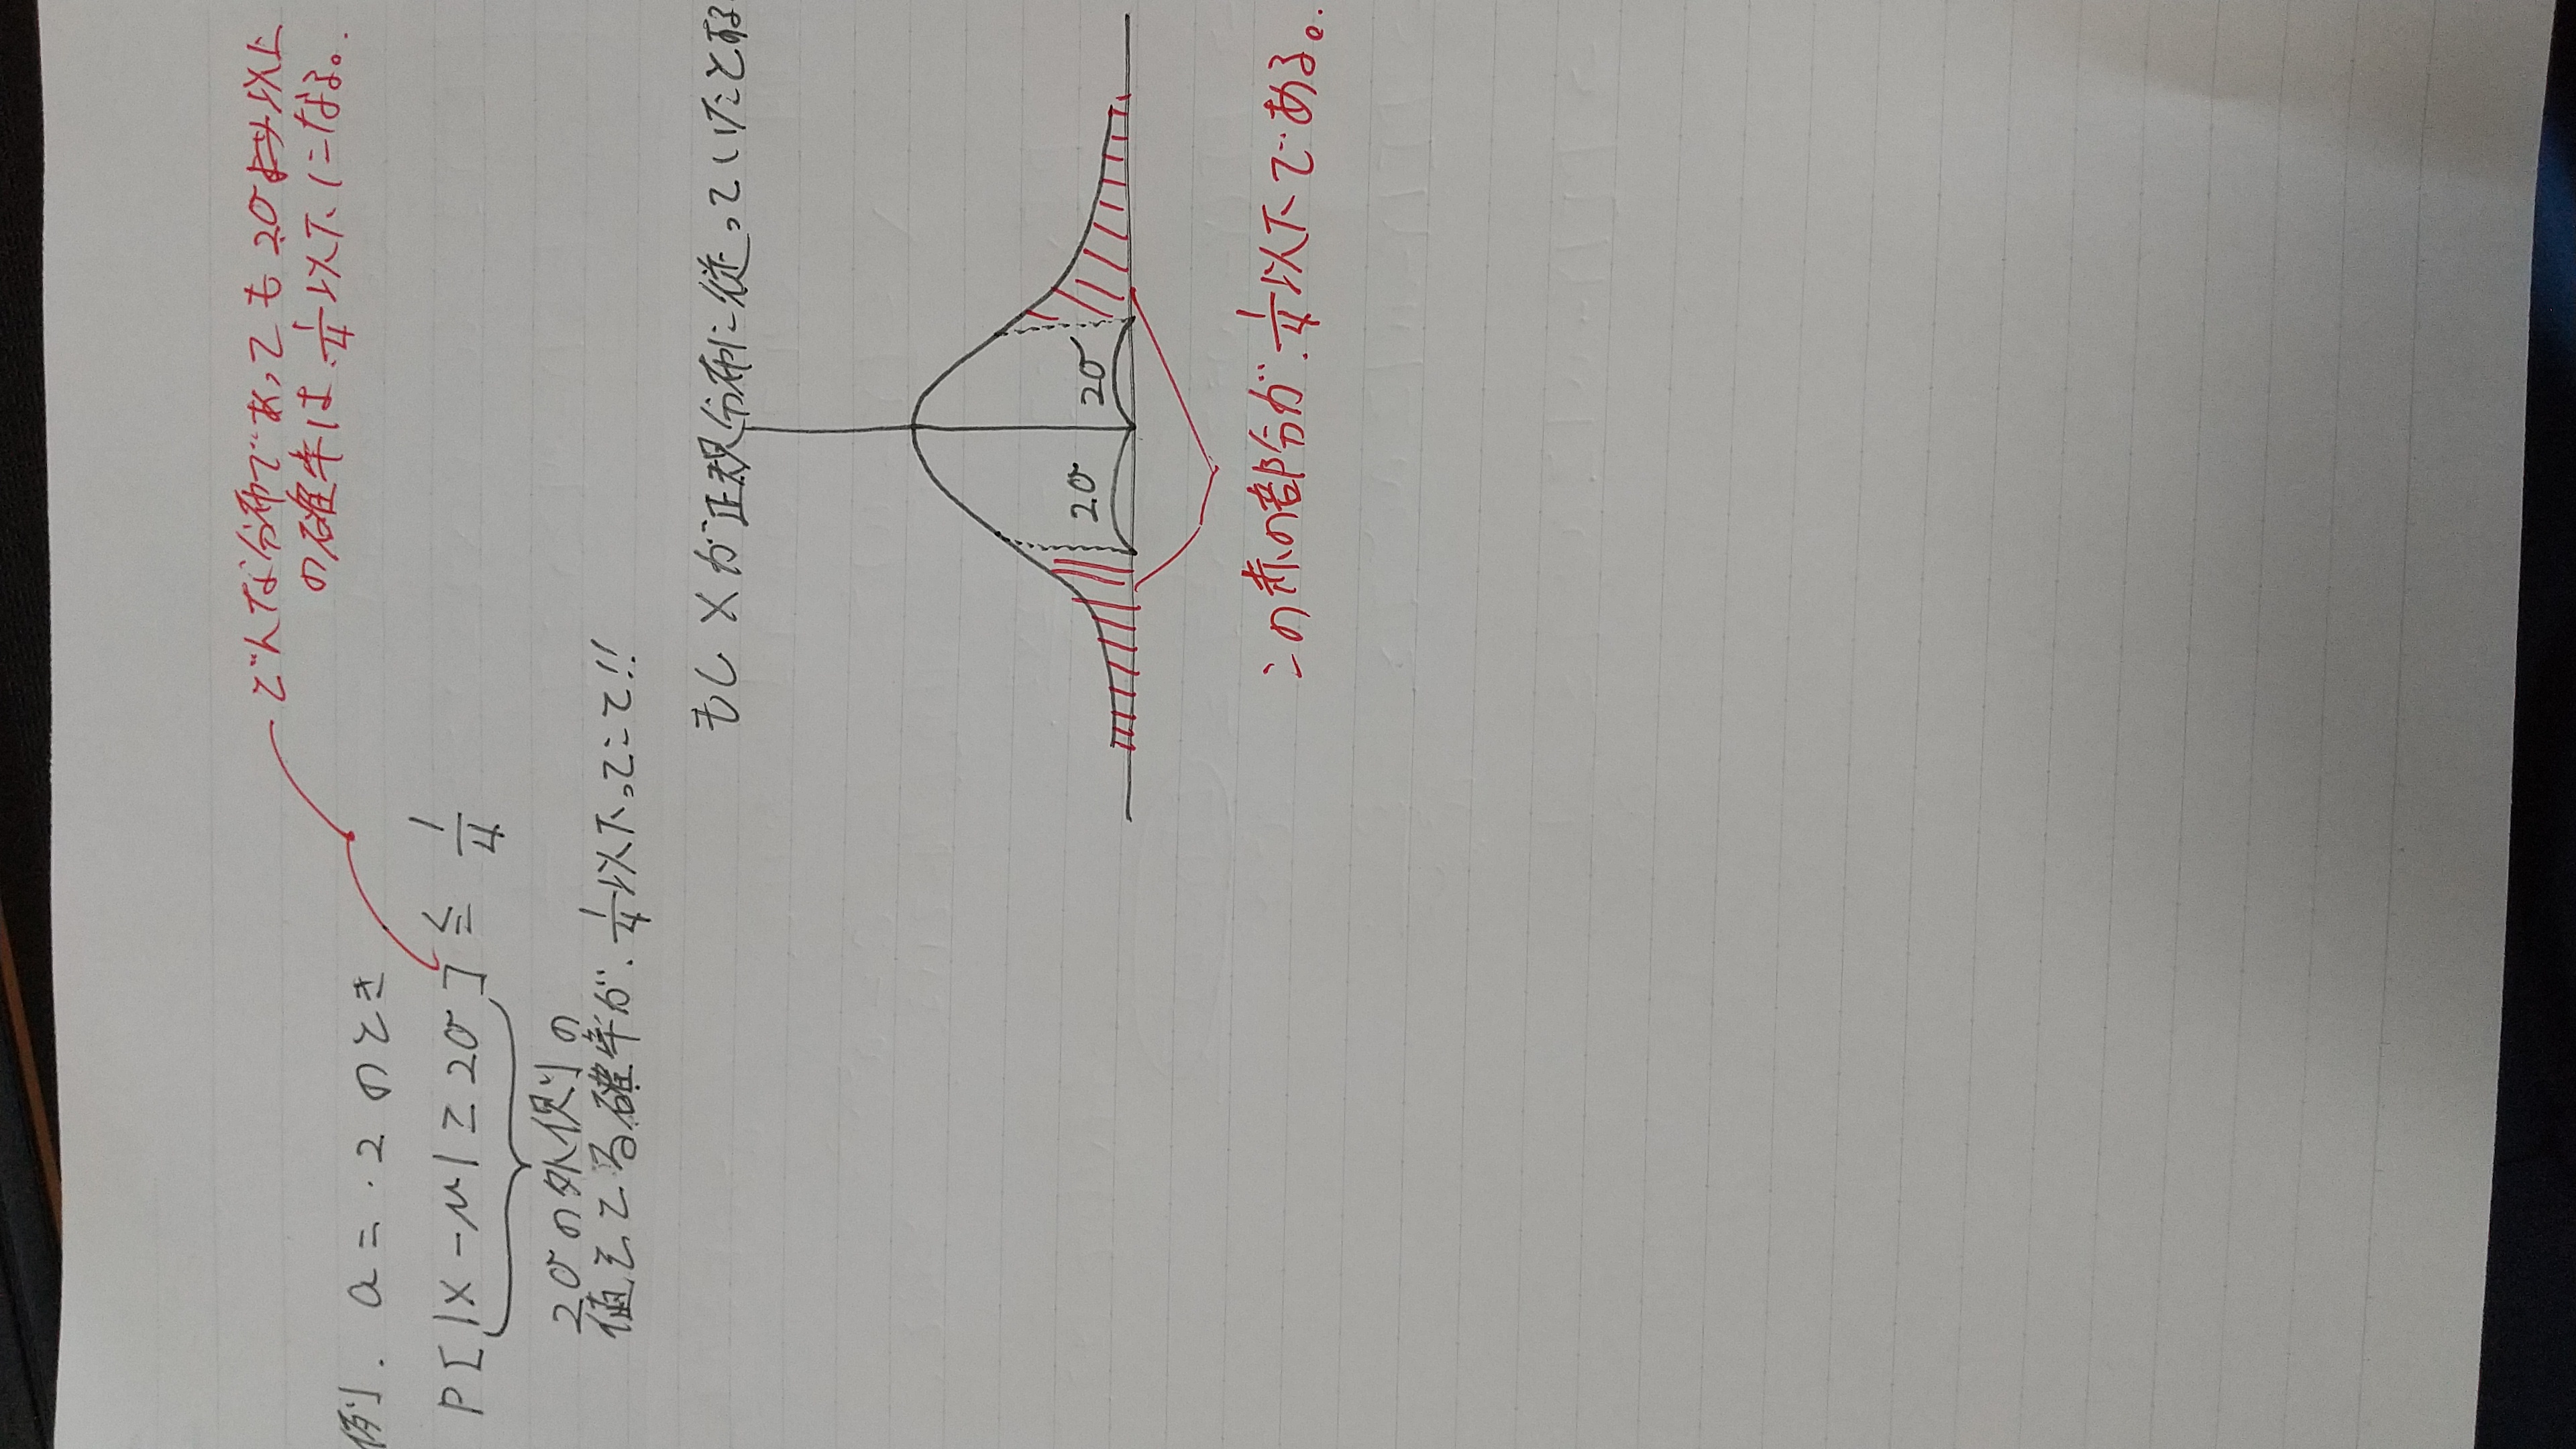 どんな分布であっても2σ以上
の確率は.1/4以下になる。.
例. a=.2のとき
P[|X-μ|≥2σ]≦1/4
2σの外側の
値をとる確率が.1/4以下ってこと!!
もしXが正規分布に従っていたとする
2σ 2σ
この赤の部分が.1/4以下である。.